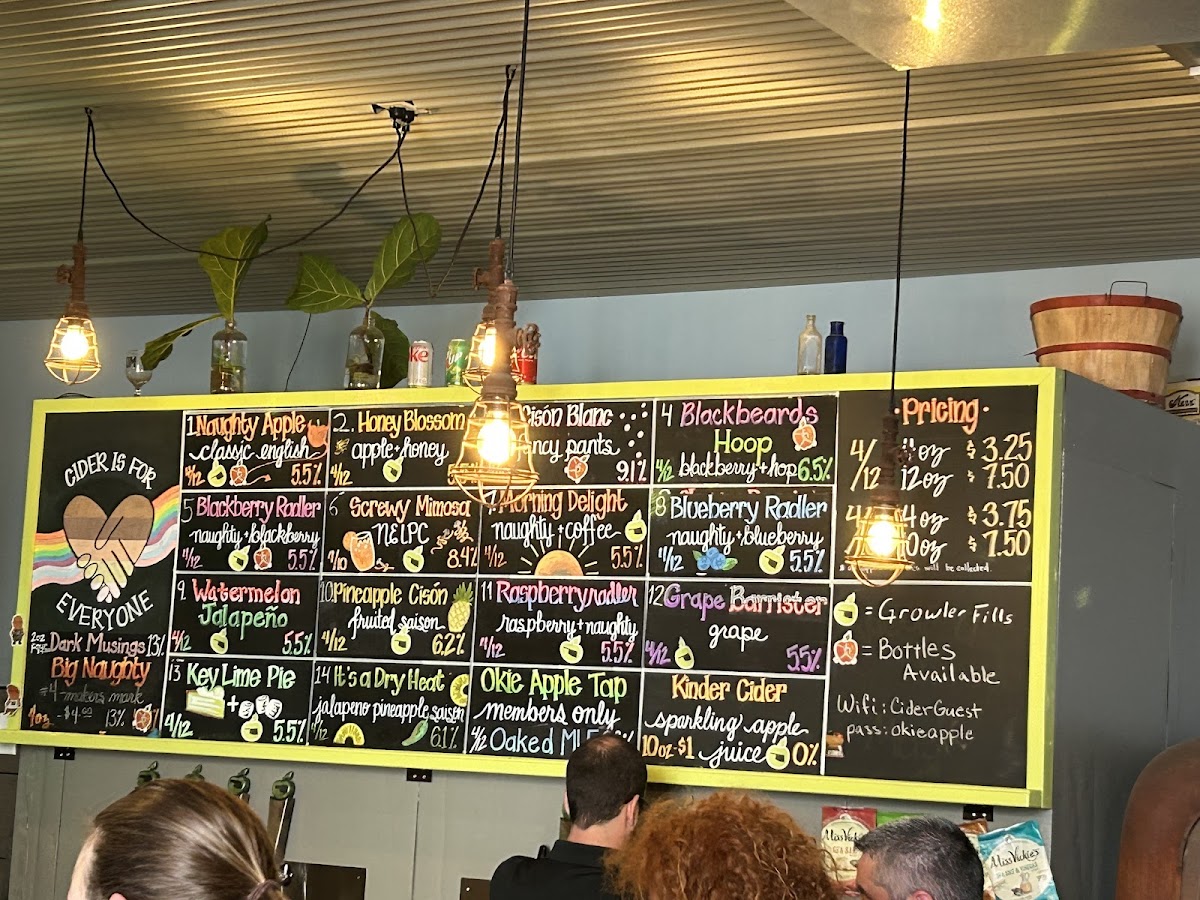 CIDER IS FOR
EVERYONE
Dark Musings 13%
Big Naughty
makers mark
13%
1 Naughty Apple
classic english
4/12 5.5%
2. Honey Blossom
apple + honey
4/12
Cisón Blanc
pants
9.1%
4 Blackbeards
Hoop
4/12 blackberry + hop 6.5%
5 Blackberry Radler
naughty + blackberry
4/12 5.5%
6 Screwy Mimosa
NELPC
4/10 8.4%
Morning Delight
naughty + coffee
4/12 5.5%
8 Blueberry Radler
naughty + blueberry
4/12 5.5%
9 Watermelon
Jalapeño
4/12 5.5%
10 Pineapple Cisón
fruited saison
4/12 6.2%
11 Raspberry radler
raspberry + naughty
4/12 5.5%
12 Grape Barrister
grape
4/12 5.5%
13 Key Lime Pie
+
4/12 5.5%
14 It's a Dry Heat
jalapeno pineapple saison
4/12 6.1%
Okie Apple Tap
members only
4/12 Oaked
Kinder Cider
sparkling apple
10oz-$1 juice 0%
·Pricing·
4/ oz $3.25
12 12oz $7.50
4oz $3.75
$7.50
will be collected.
= Growler Fills
= Bottles
Available
Wifi: CiderGuest
pass: okieapple
Miss Vickie's
Miss Vickie's